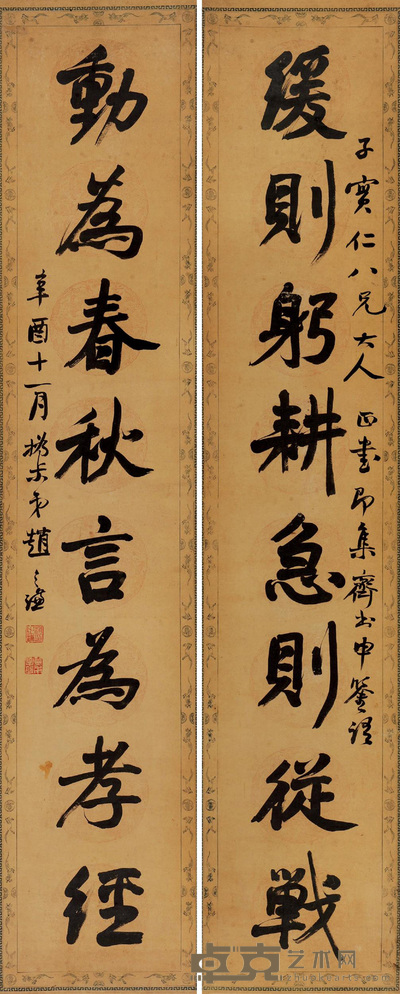 緩則躬耕急則從戰
子實仁八兄大人正書即集齊書申鑒語
動為春秋言為孝經
辛酉十一月撝尗弟趙之謙
卓克艺术网